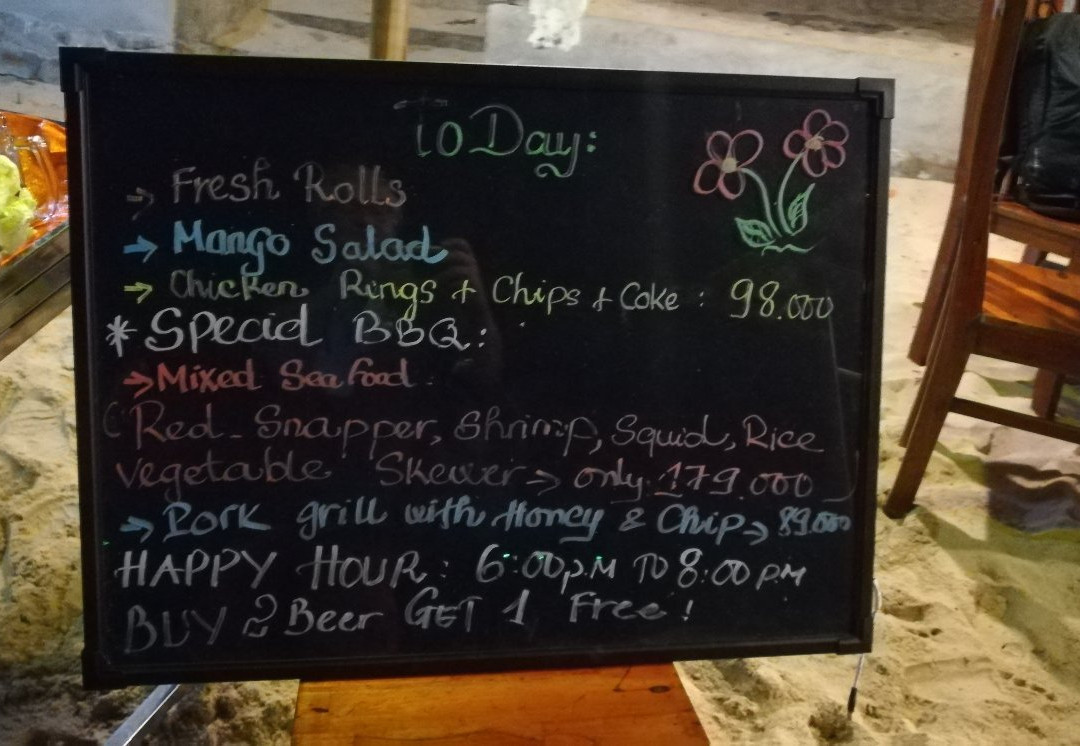 ToDay:
→ Fresh Rolls
→ Mango Salad
→ Chicken Rings + Chips + Coke : 98.000
* Special BBQ:
→ Mixed Sea food
(Red - Snapper, Shrimp, Squid, Rice
vegetable Skewer → only 179.000
→ Pork grill with Honey & Chip → 89.000
HAPPY HOUR : 6:00 P.M TO 8:00 P.M
BUY 2 Beer GET 1 Free !